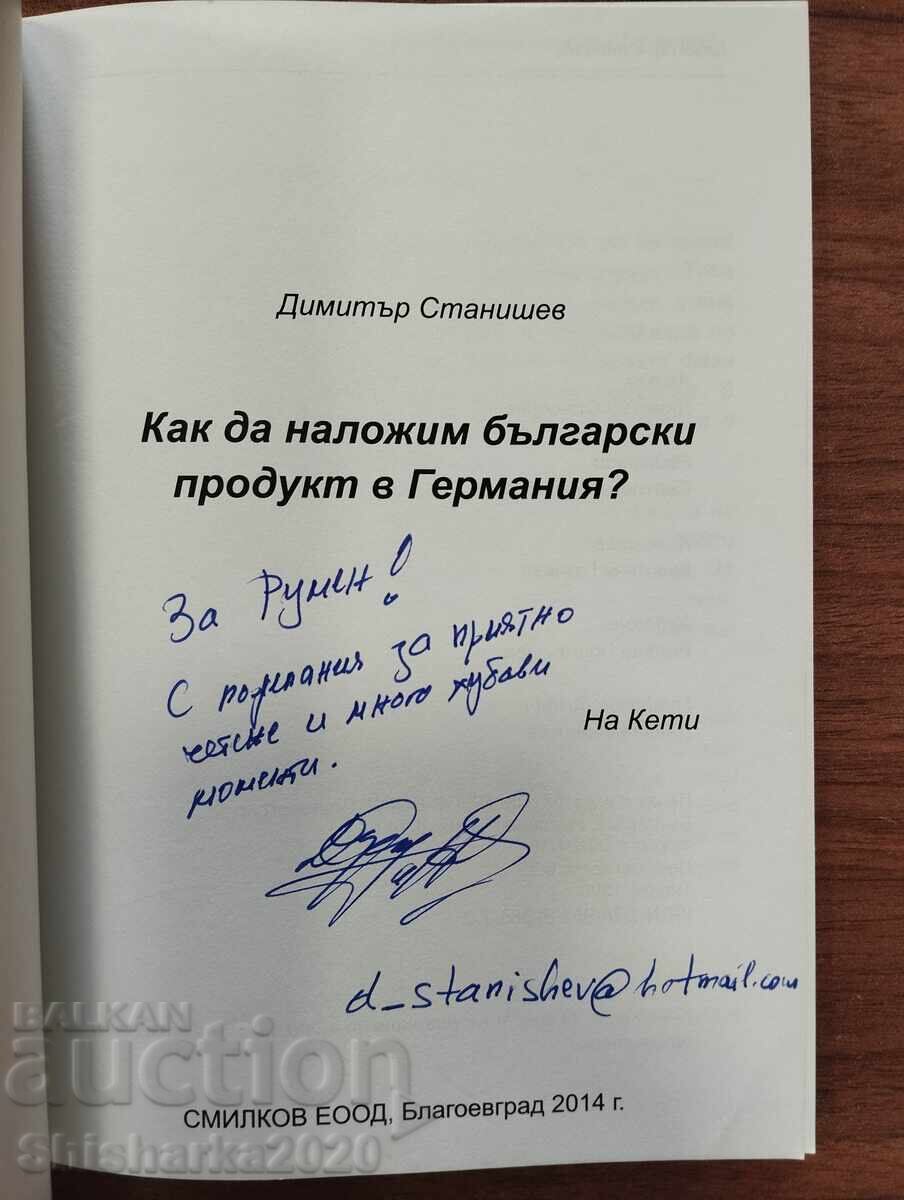 Димитър Станишев
Как да наложим български
продукт в Германия?
За Румен!
С пожелания за приятно
четене и много хубави
моменти.
На Кети
d_stanishev@hotmail.com
BALKAN
auction
СМИЛКОВ ЕООД, Благоевград 2014 г.
Shisharka2020